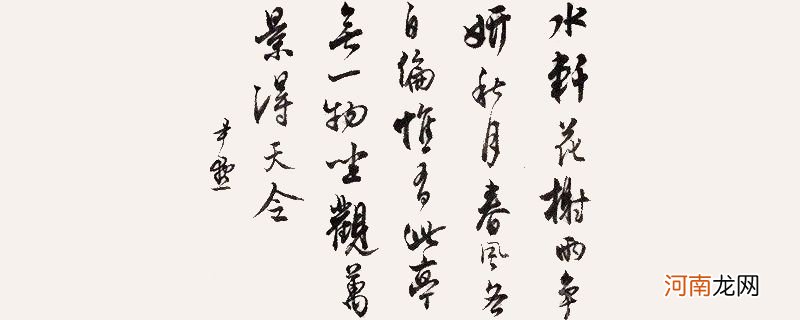 水軒花榭兩争
妍秋月春風各
自偏惟有此亭
無一物坐觀萬
景得天全
尹默
河南龙网